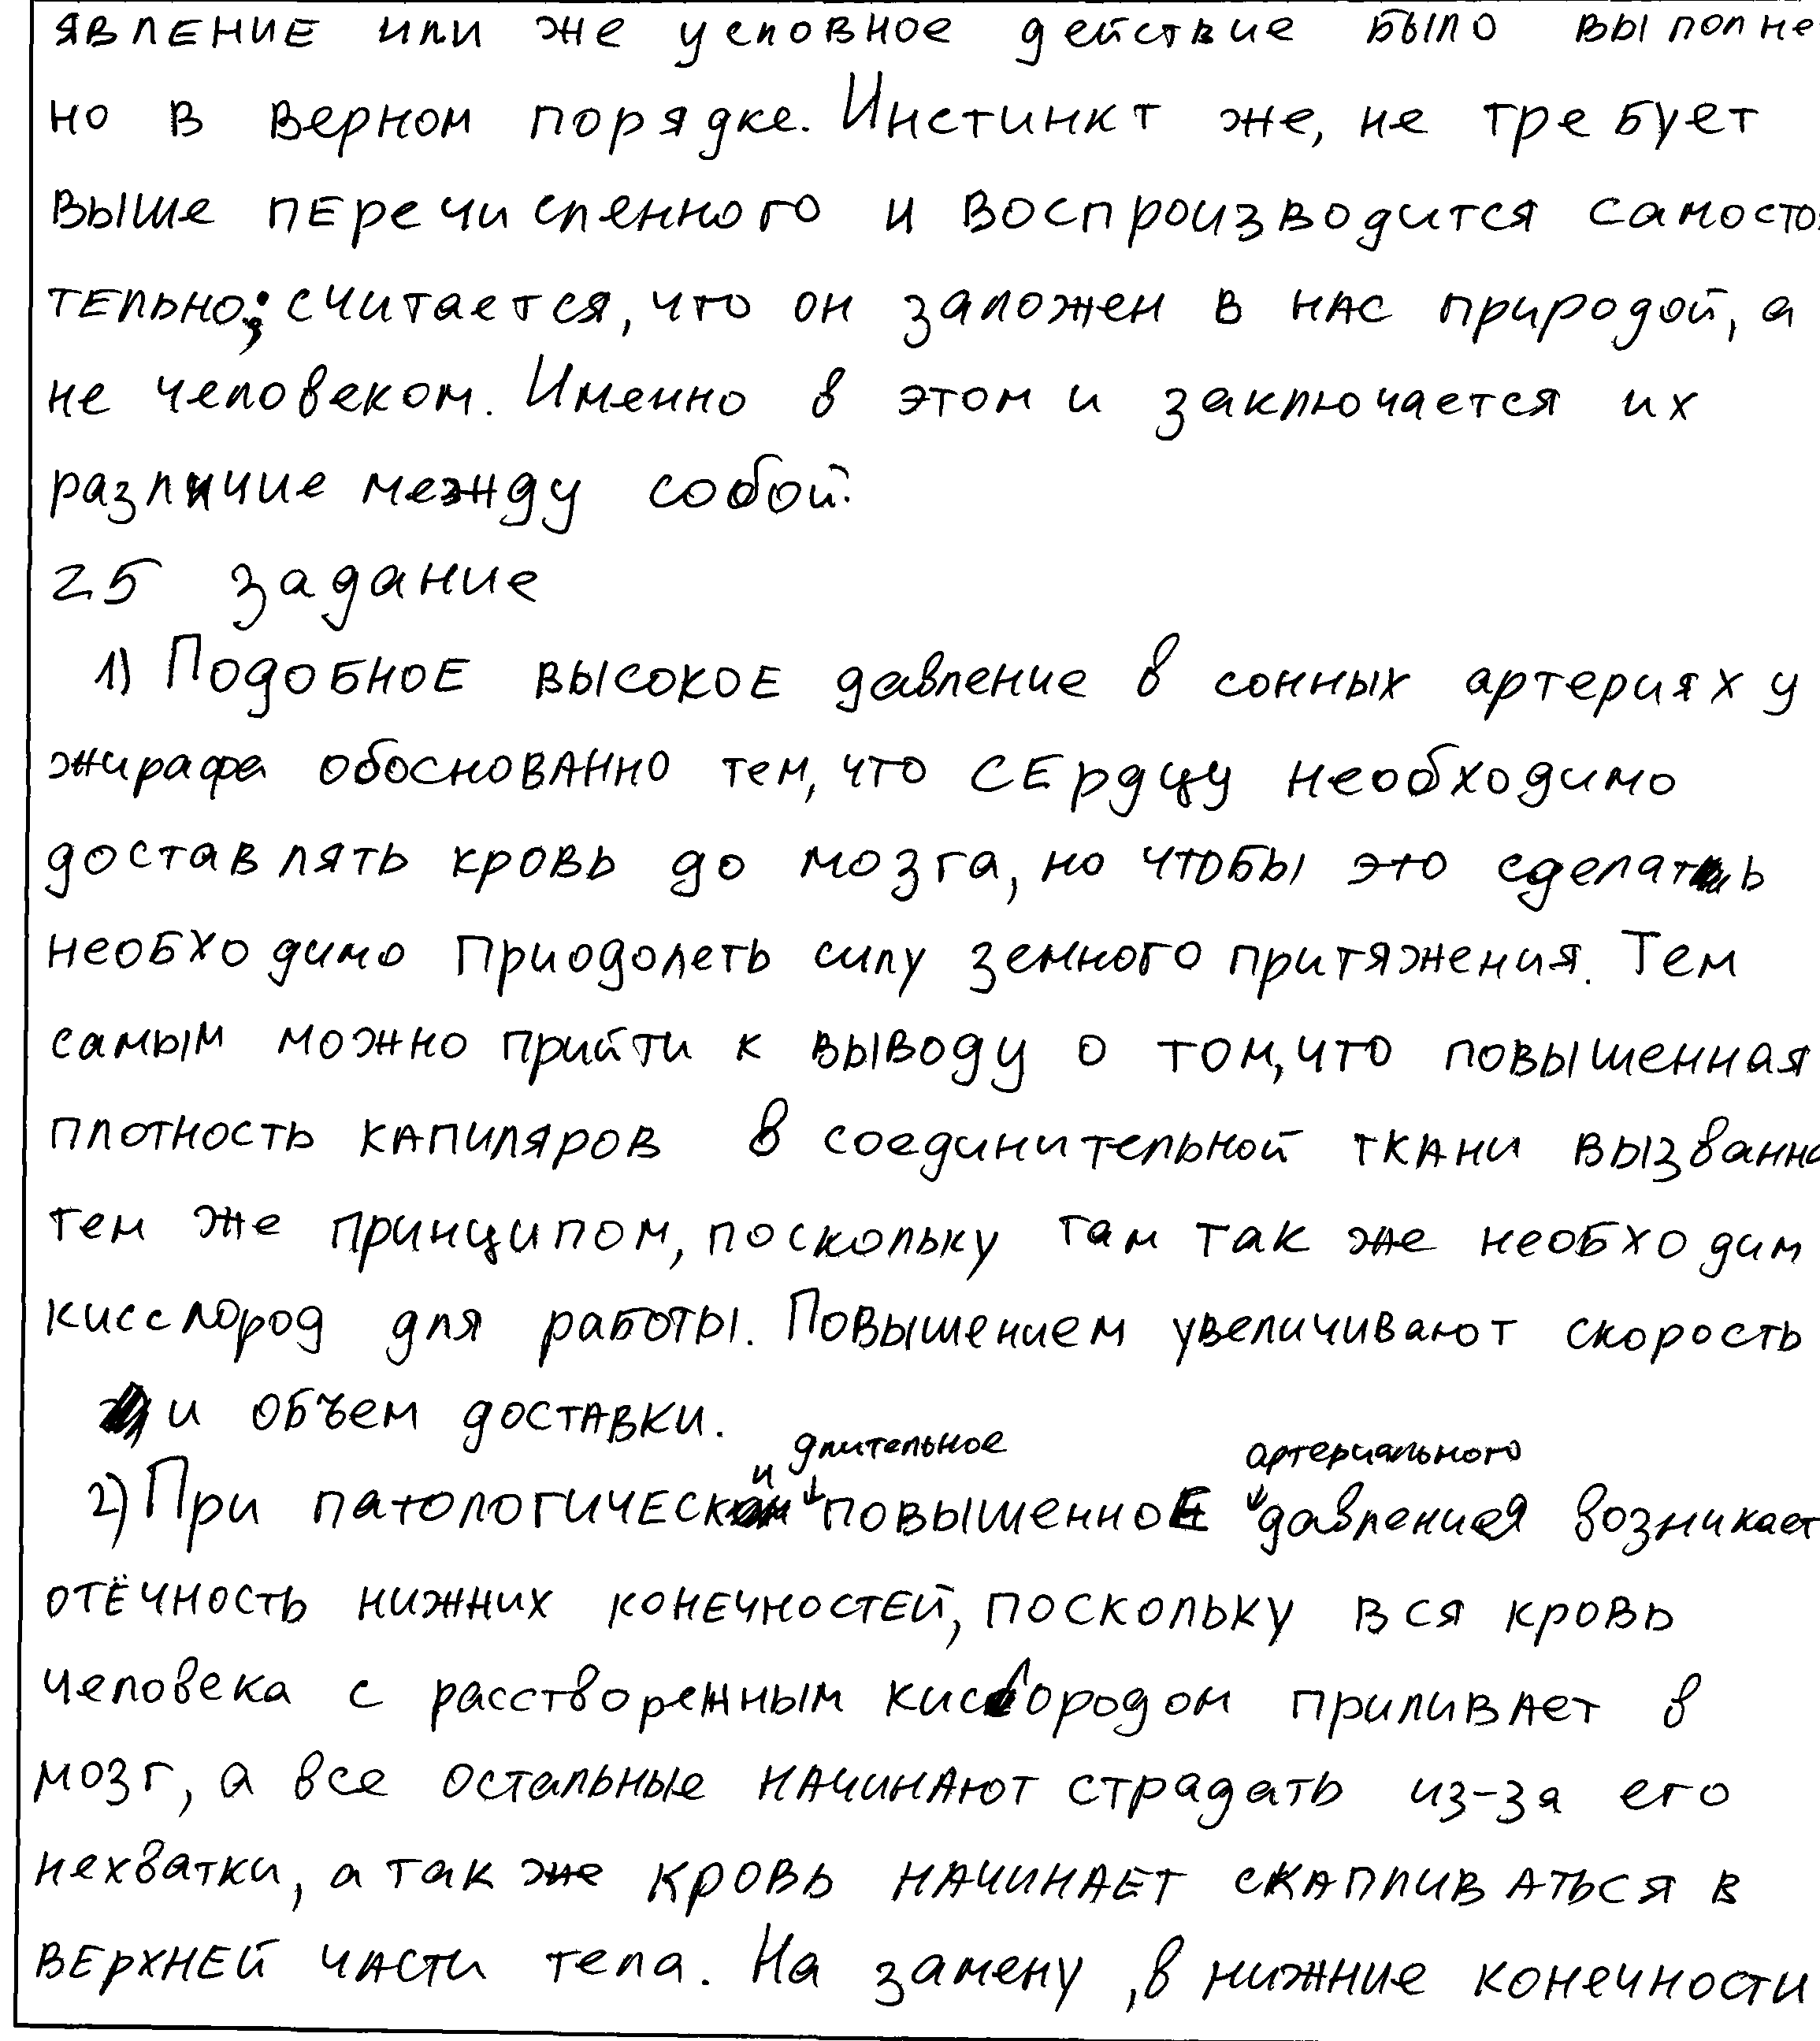 явление или же условное действие было выполне
но в верном порядке. Инстинкт же, не требует
выше перечисленного и воспроизводится самосто
тельно; считается, что он заложен в нас природой, а
не человеком. Именно в этом и заключается их
различие между собой.
25 задание
1) Подобное высокое давление в сонных артериях у
жирафа обоснованно тем, что сердцу необходимо
доставлять кровь до мозга, но чтобы это сделать
необходимо приодолеть силу земного притяжения. Тем
самым можно прийти к выводу о том, что повышенная
плотность капиляров в соединительной ткани вызванна
тем же принципом, поскольку там так же необходим
кисслород для работы. Повышением увеличивают скорость
и объем доставки.
длительное артериального
2) При патологически повышенное давления возникает
отёчность нижних конечностей, поскольку вся кровь
человека с расстворенным кислородом приливает в
мозг, а все остальные начинают страдать из-за его
нехватки, а так же кровь начинает скапливаться в
верхней части тела. На замену, в нижние конечности